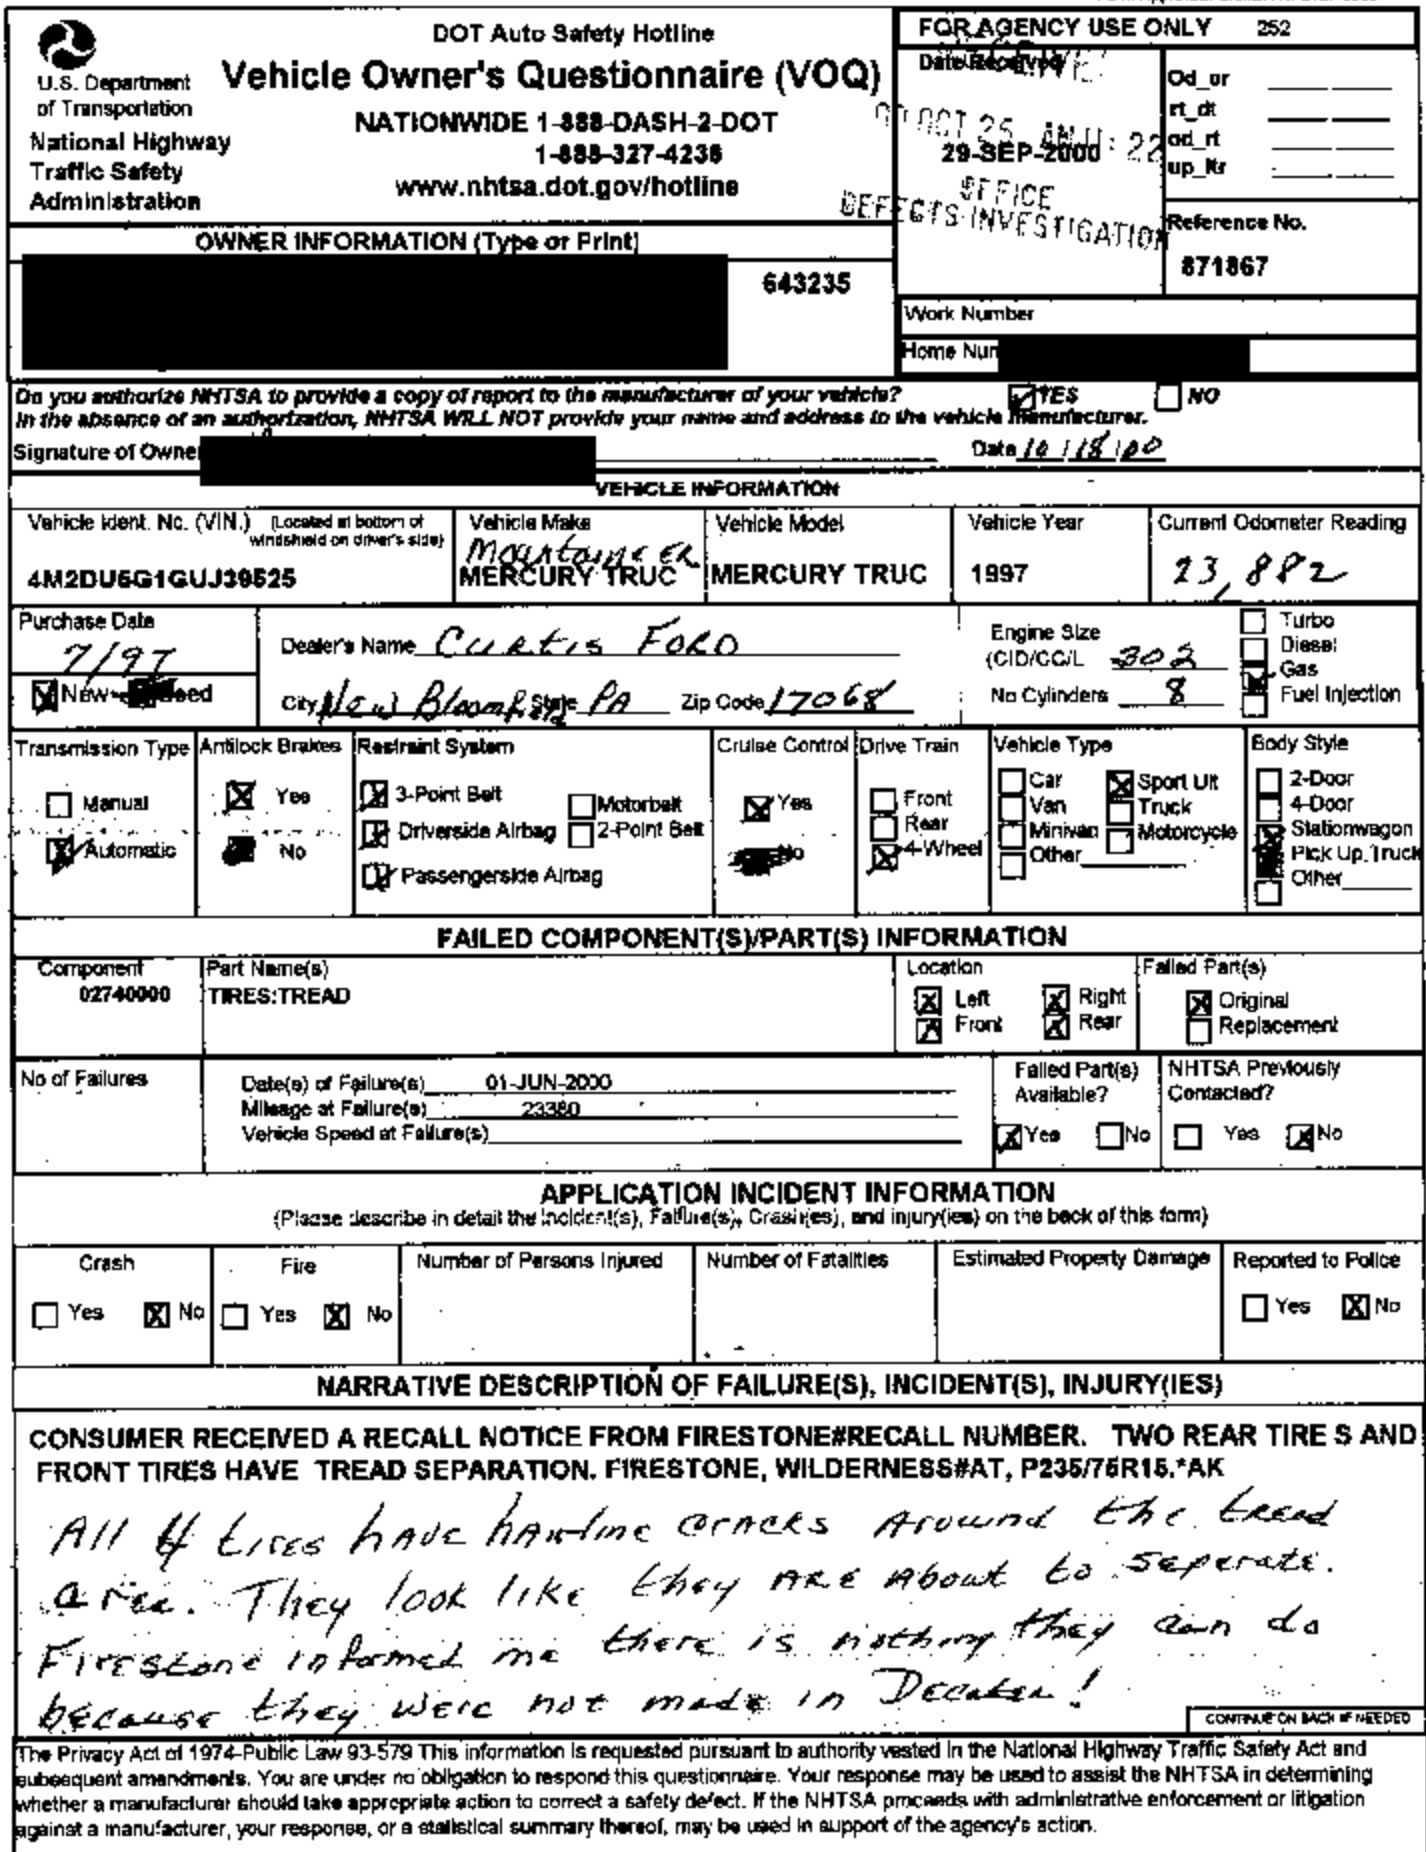 DOT Auto Safety Hotline
Vehicle Owner's Questionnaire (VOQ)
NATIONWIDE 1-888-DASH-2-DOT
1-888-327-4236
www.nhtsa.dot.gov/hotline
U.S. Department
of Transportation
National Highway
Traffic Safety
Administration
FOR AGENCY USE ONLY 252
Date Received
OCT 25 AM 11: 22
29-SEP-2000
OFFICE
DEFECTS INVESTIGATION
Od_or
rt_dt
od_rt
up_ltr
Reference No.
871867
OWNER INFORMATION (Type or Print)
643235
Work Number
Home Num
Do you authorize NHTSA to provide a copy of report to the manufacturer of your vehicle? YES NO
In the absence of an authorization, NHTSA WILL NOT provide your name and address to the vehicle manufacturer.
Signature of Owne Date 10 / 18 / 00
VEHICLE INFORMATION
Vehicle Ident. No. (VIN.) (Located at bottom of windshield on driver's side)
4M2DU5G1GUJ39525
Vehicle Make
Mountaineer
MERCURY TRUC
Vehicle Model
MERCURY TRUC
Vehicle Year
1997
Current Odometer Reading
23,882
Purchase Date
7/97
New Used
Dealer's Name Curtis Ford
City New Bloomfield State PA Zip Code 17068
Engine Size
(CID/CC/L 302
No Cylinders 8
Turbo
Diesel
Gas
Fuel Injection
Transmission Type
Manual
Automatic
Antilock Brakes
Yes
No
Restraint System
3-Point Belt
Driverside Airbag
Passengerside Airbag
Motorbelt
2-Point Belt
Cruise Control
Yes
No
Drive Train
Front
Rear
4-Wheel
Vehicle Type
Car
Van
Minivan
Other
Sport Ult
Truck
Motorcycle
Body Style
2-Door
4-Door
Stationwagon
Pick Up Truck
Other
FAILED COMPONENT(S)/PART(S) INFORMATION
Component
02740000
Part Name(s)
TIRES:TREAD
Location
Left Right
Front Rear
Failed Part(s)
Original
Replacement
No of Failures
Date(s) of Failure(s) 01-JUN-2000
Mileage at Failure(s) 23380
Vehicle Speed at Failure(s)
Failed Part(s)
Available?
Yes No
NHTSA Previously
Contacted?
Yes No
APPLICATION INCIDENT INFORMATION
(Please describe in detail the incident(s), Failure(s), Crash(es), and injury(ies) on the back of this form)
Crash
Yes No
Fire
Yes No
Number of Persons Injured
Number of Fatalities
Estimated Property Damage
Reported to Police
Yes No
NARRATIVE DESCRIPTION OF FAILURE(S), INCIDENT(S), INJURY(IES)
CONSUMER RECEIVED A RECALL NOTICE FROM FIRESTONE#RECALL NUMBER. TWO REAR TIRE S AND
FRONT TIRES HAVE TREAD SEPARATION. FIRESTONE, WILDERNESS#AT, P235/75R15.*AK
All 4 tires have hairline cracks around the tread
area. They look like they are about to seperate.
Firestone informed me there is nothing they can do
because they were not made in Decater!
CONTINUE ON BACK IF NEEDED
The Privacy Act of 1974-Public Law 93-579 This information is requested pursuant to authority vested in the National Highway Traffic Safety Act and
subsequent amendments. You are under no obligation to respond this questionnaire. Your response may be used to assist the NHTSA in determining
whether a manufacturer should take appropriate action to correct a safety defect. If the NHTSA proceeds with administrative enforcement or litigation
against a manufacturer, your response, or a statistical summary thereof, may be used in support of the agency's action.